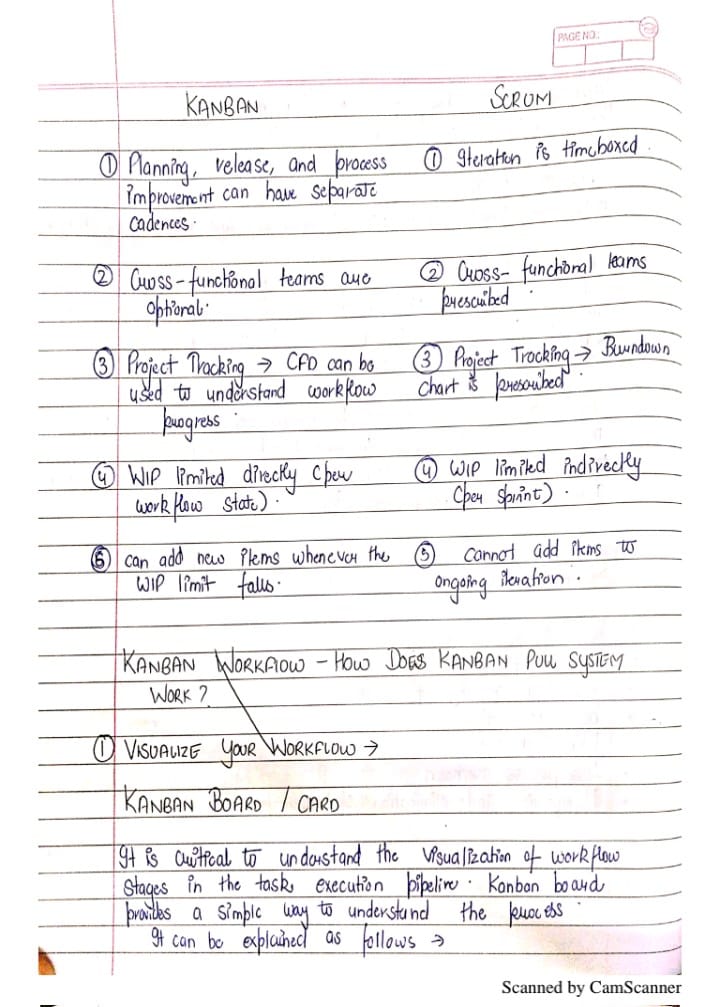 PAGE NO.:
KANBAN
SCRUM
① Planning, release, and process
improvement can have separate
cadences.
① Iteration is timeboxed.
② Cross-functional teams are
optional.
② Cross-functional teams
prescribed
③ Project Tracking → CFD can be
used to understand workflow
progress
③ Project Tracking → Burndown
chart is prescribed
④ WIP limited directly (per
workflow state).
④ WIP limited indirectly
(per sprint).
⑤ can add new items whenever the
WIP limit falls.
⑤ cannot add items to
ongoing iteration.
KANBAN WORKFLOW - HOW DOES KANBAN PULL SYSTEM
WORK?
① VISUALIZE YOUR WORKFLOW →
KANBAN BOARD / CARD
It is critical to understand the visualization of workflow
stages in the task execution pipeline. Kanban board
provides a simple way to understand the process.
It can be explained as follows →
Scanned by CamScanner